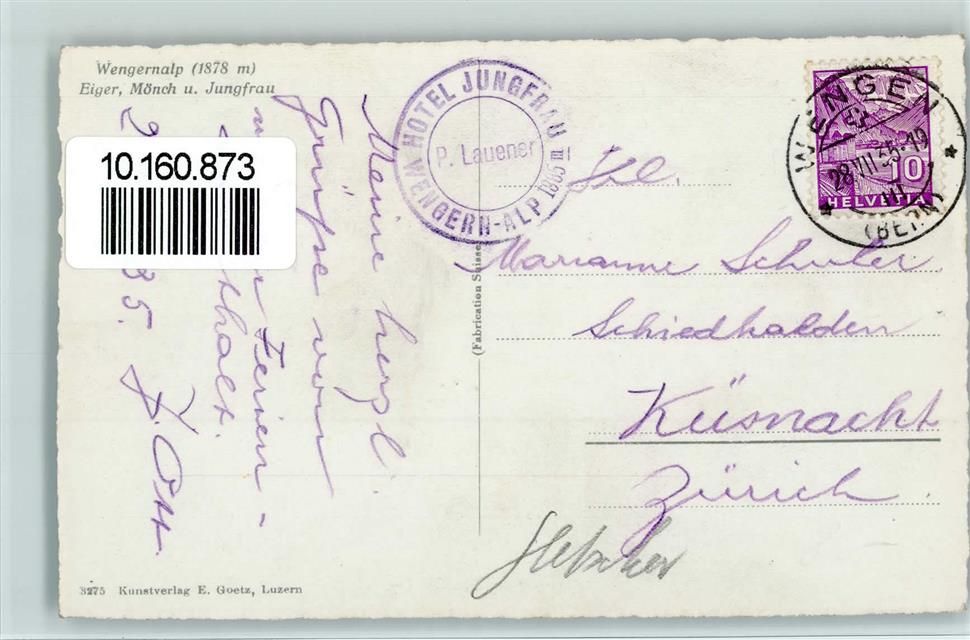 Wengernalp (1878 m)
Eiger, Mönch u. Jungfrau
10.160.873
HOTEL JUNGFRAU
P. Lauener
WENGERN-ALP 1885 m
WENGEN
28.VII.35-19
(BERN)
10
HELVETIA
Meine herzl.
Grüsse vom
Ferien-
35. K. Ott.
Frl.
Marianne Schuler
Schiedhalden
Küsnacht
Zürich.
Gletscher
(Fabrication Suisse)
3275 Kunstverlag E. Goetz, Luzern